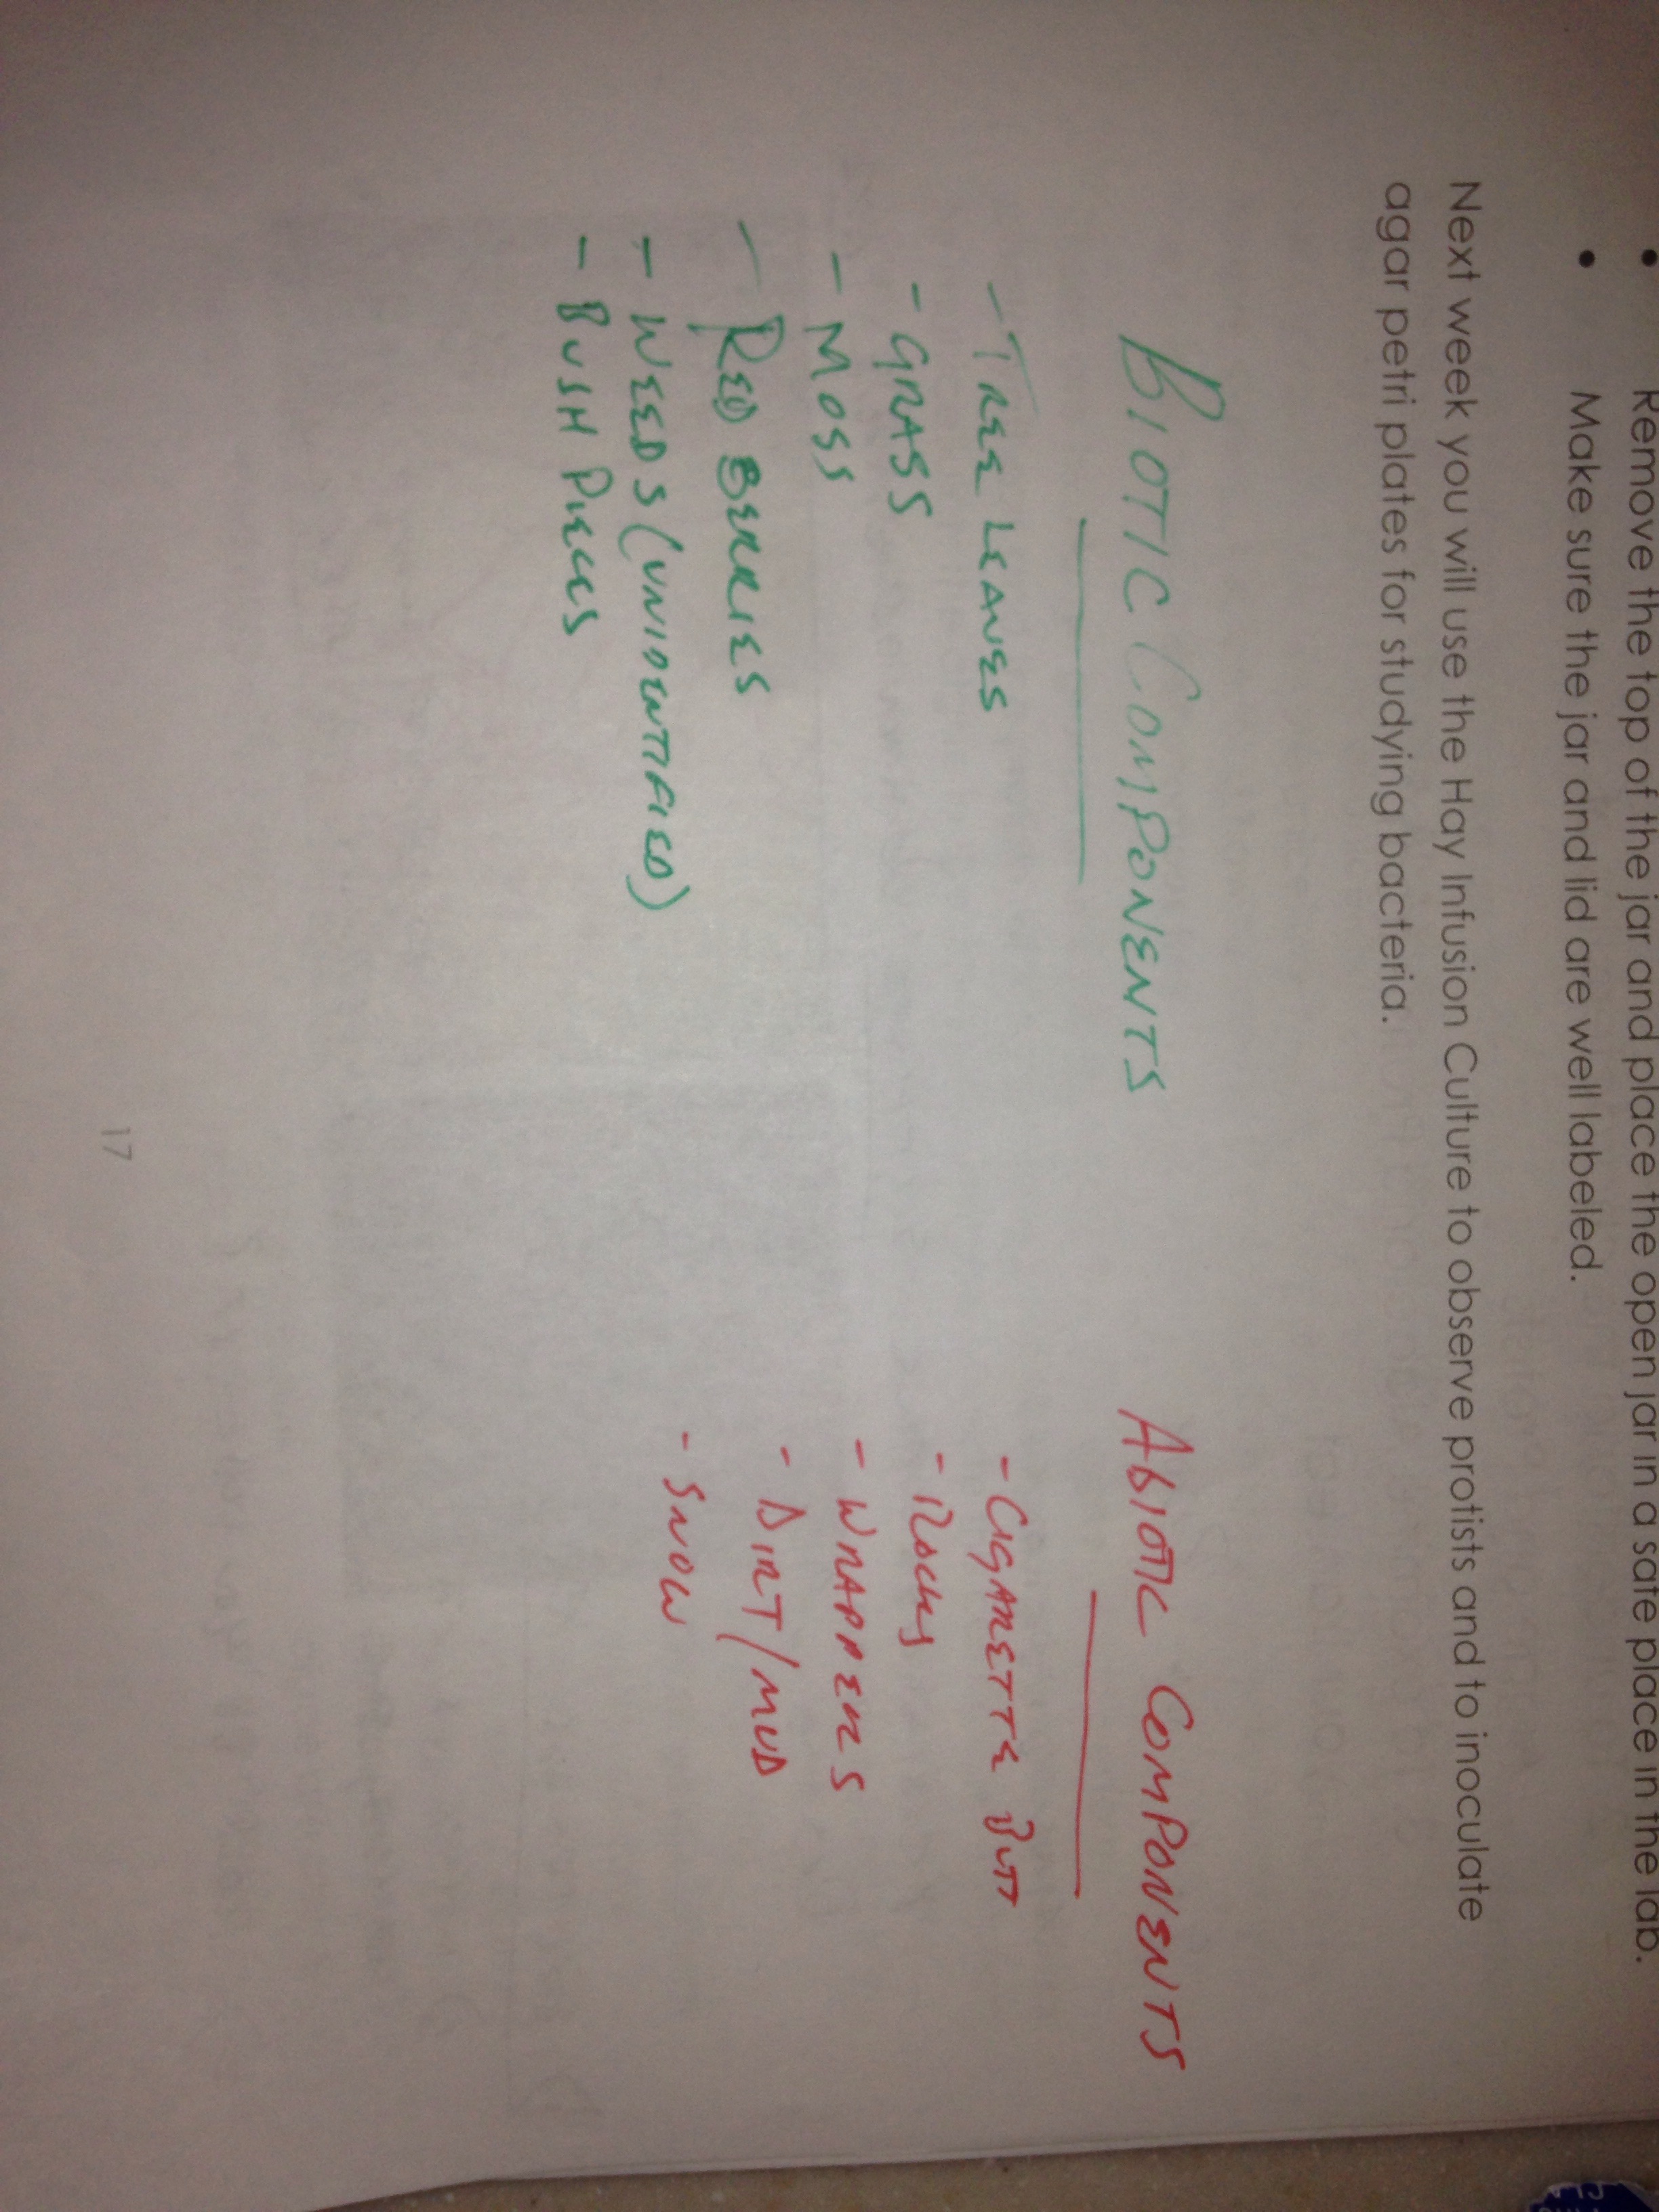 Remove the top of the jar and place the open jar in a safe place in the lab.
• Make sure the jar and lid are well labeled.
Next week you will use the Hay Infusion Culture to observe protists and to inoculate
agar petri plates for studying bacteria.
BIOTIC COMPONENTS
- TREE LEAVES
- GRASS
- MOSS
- RED BERRIES
- WEEDS (UNIDENTIFIED)
- BUSH PIECES
ABIOTIC COMPONENTS
- CIGARETTE BUTT
- ROCKS
- WRAPPERS
- DIRT/MUD
- SNOW
17